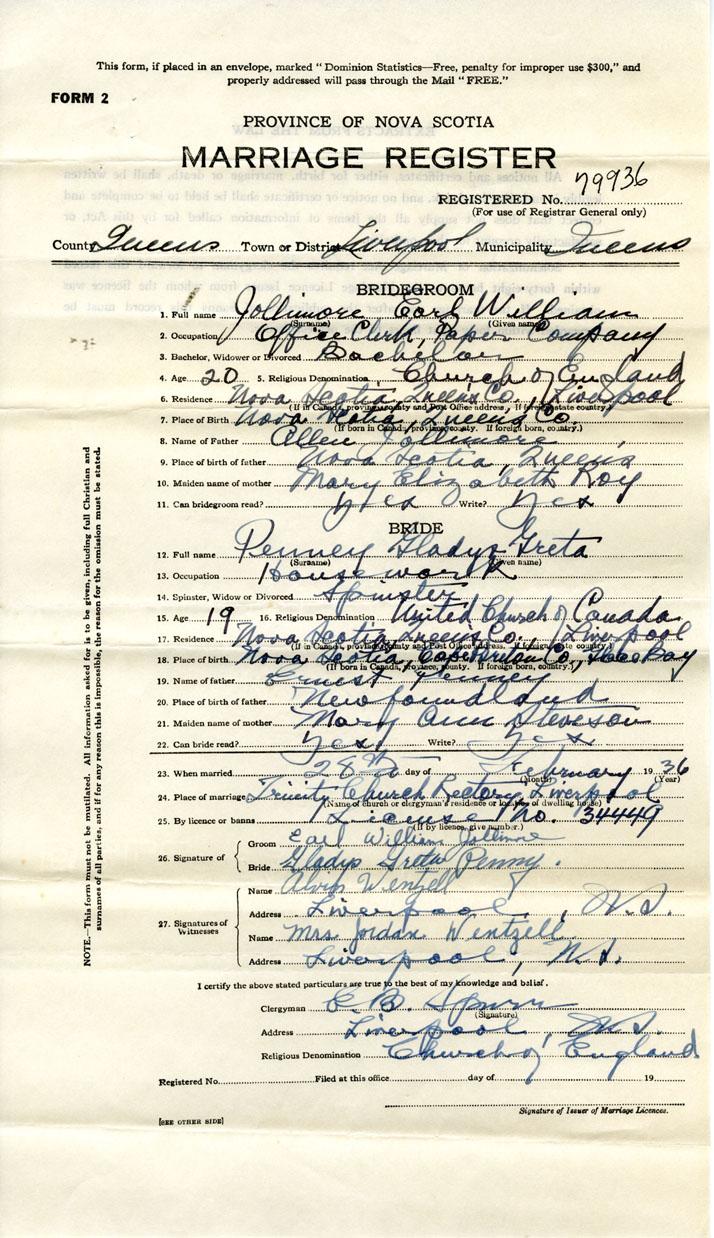 This form, if placed in an envelope, marked "Dominion Statistics—Free, penalty for improper use $300," and
properly addressed will pass through the Mail "FREE."
FORM 2
PROVINCE OF NOVA SCOTIA
MARRIAGE REGISTER
REGISTERED No. 79936
(For use of Registrar General only)
County Queens Town or District Liverpool Municipality Queens
BRIDEGROOM
1. Full name Jollimore Earl William
(Surname) (Given name)
2. Occupation Office Clerk, Paper Company
3. Bachelor, Widower or Divorced Bachelor
4. Age 20 5. Religious Denomination Church of England
6. Residence Nova Scotia Queens Co., Liverpool
(If in Canada, province, county and Post Office address. If foreign state country)
7. Place of Birth Nova Scotia, Queens Co.
(If born in Canada, province, county. If foreign born, country.)
8. Name of Father Allen Jollimore
9. Place of birth of father Nova Scotia, Queens
10. Maiden name of mother Mary Elizabeth Roy
11. Can bridegroom read? Yes Write? Yes
BRIDE
12. Full name Penney Gladys Greta
(Surname) (Given name)
13. Occupation Housework
14. Spinster, Widow or Divorced Spinster
15. Age 19 16. Religious Denomination United Church of Canada
17. Residence Nova Scotia Queens Co. Liverpool
(If in Canada, province, county and Post Office address. If foreign state country.)
18. Place of birth Nova Scotia, Cape Breton Co, Bay
(If born in Canada, province, county. If foreign born, country.)
19. Name of father Ernest Penney
20. Place of birth of father Newfoundland
21. Maiden name of mother Mary Ann
22. Can bride read? Yes Write? Yes
23. When married 28th day of February 1936
(Month) (Year)
24. Place of marriage Trinity Church Rectory, Liverpool
(Name of church or clergyman's residence or location of dwelling house)
25. By licence or banns License No. 34449
(If by licence, give number.)
26. Signature of
Groom Earl William Jollimore
Bride Gladys Greta Penny.
27. Signatures of Witnesses
Name Alvin Wentzell
Address Liverpool, N.S.
Name Mrs. Jordan Wentzell
Address Liverpool, N.S.
I certify the above stated particulars are true to the best of my knowledge and belief.
Clergyman C. B. Spurr
(Signature)
Address Liverpool, N.S.
Religious Denomination Church of England
Registered No. Filed at this office day of 19
Signature of Issuer of Marriage Licences.
[SEE OTHER SIDE]
NOTE.—This form must not be mutilated. All information asked for is to be given, including full Christian and
surnames of all parties, and if for any reason this is impossible, the reason for the omission must be stated.